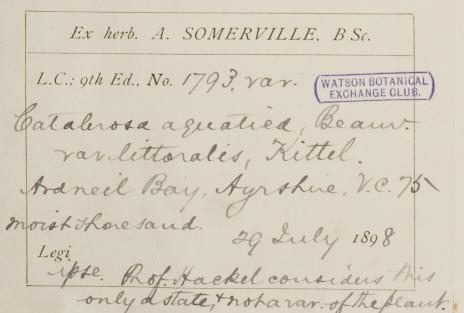 Ex herb. A. SOMERVILLE, B Sc.
L.C.; 9th Ed., No. 1793, var.
WATSON BOTANICAL
EXCHANGE CLUB.
Catabrosa aquatica, Beauv.
var. littoralis, Kittel.
Ardneil Bay, Ayrshire, V.C. 75
moist shore sand.
29 July 1898
Legi
ipse. Prof. Hackel considers this
only a state, & not a var. of the plant.